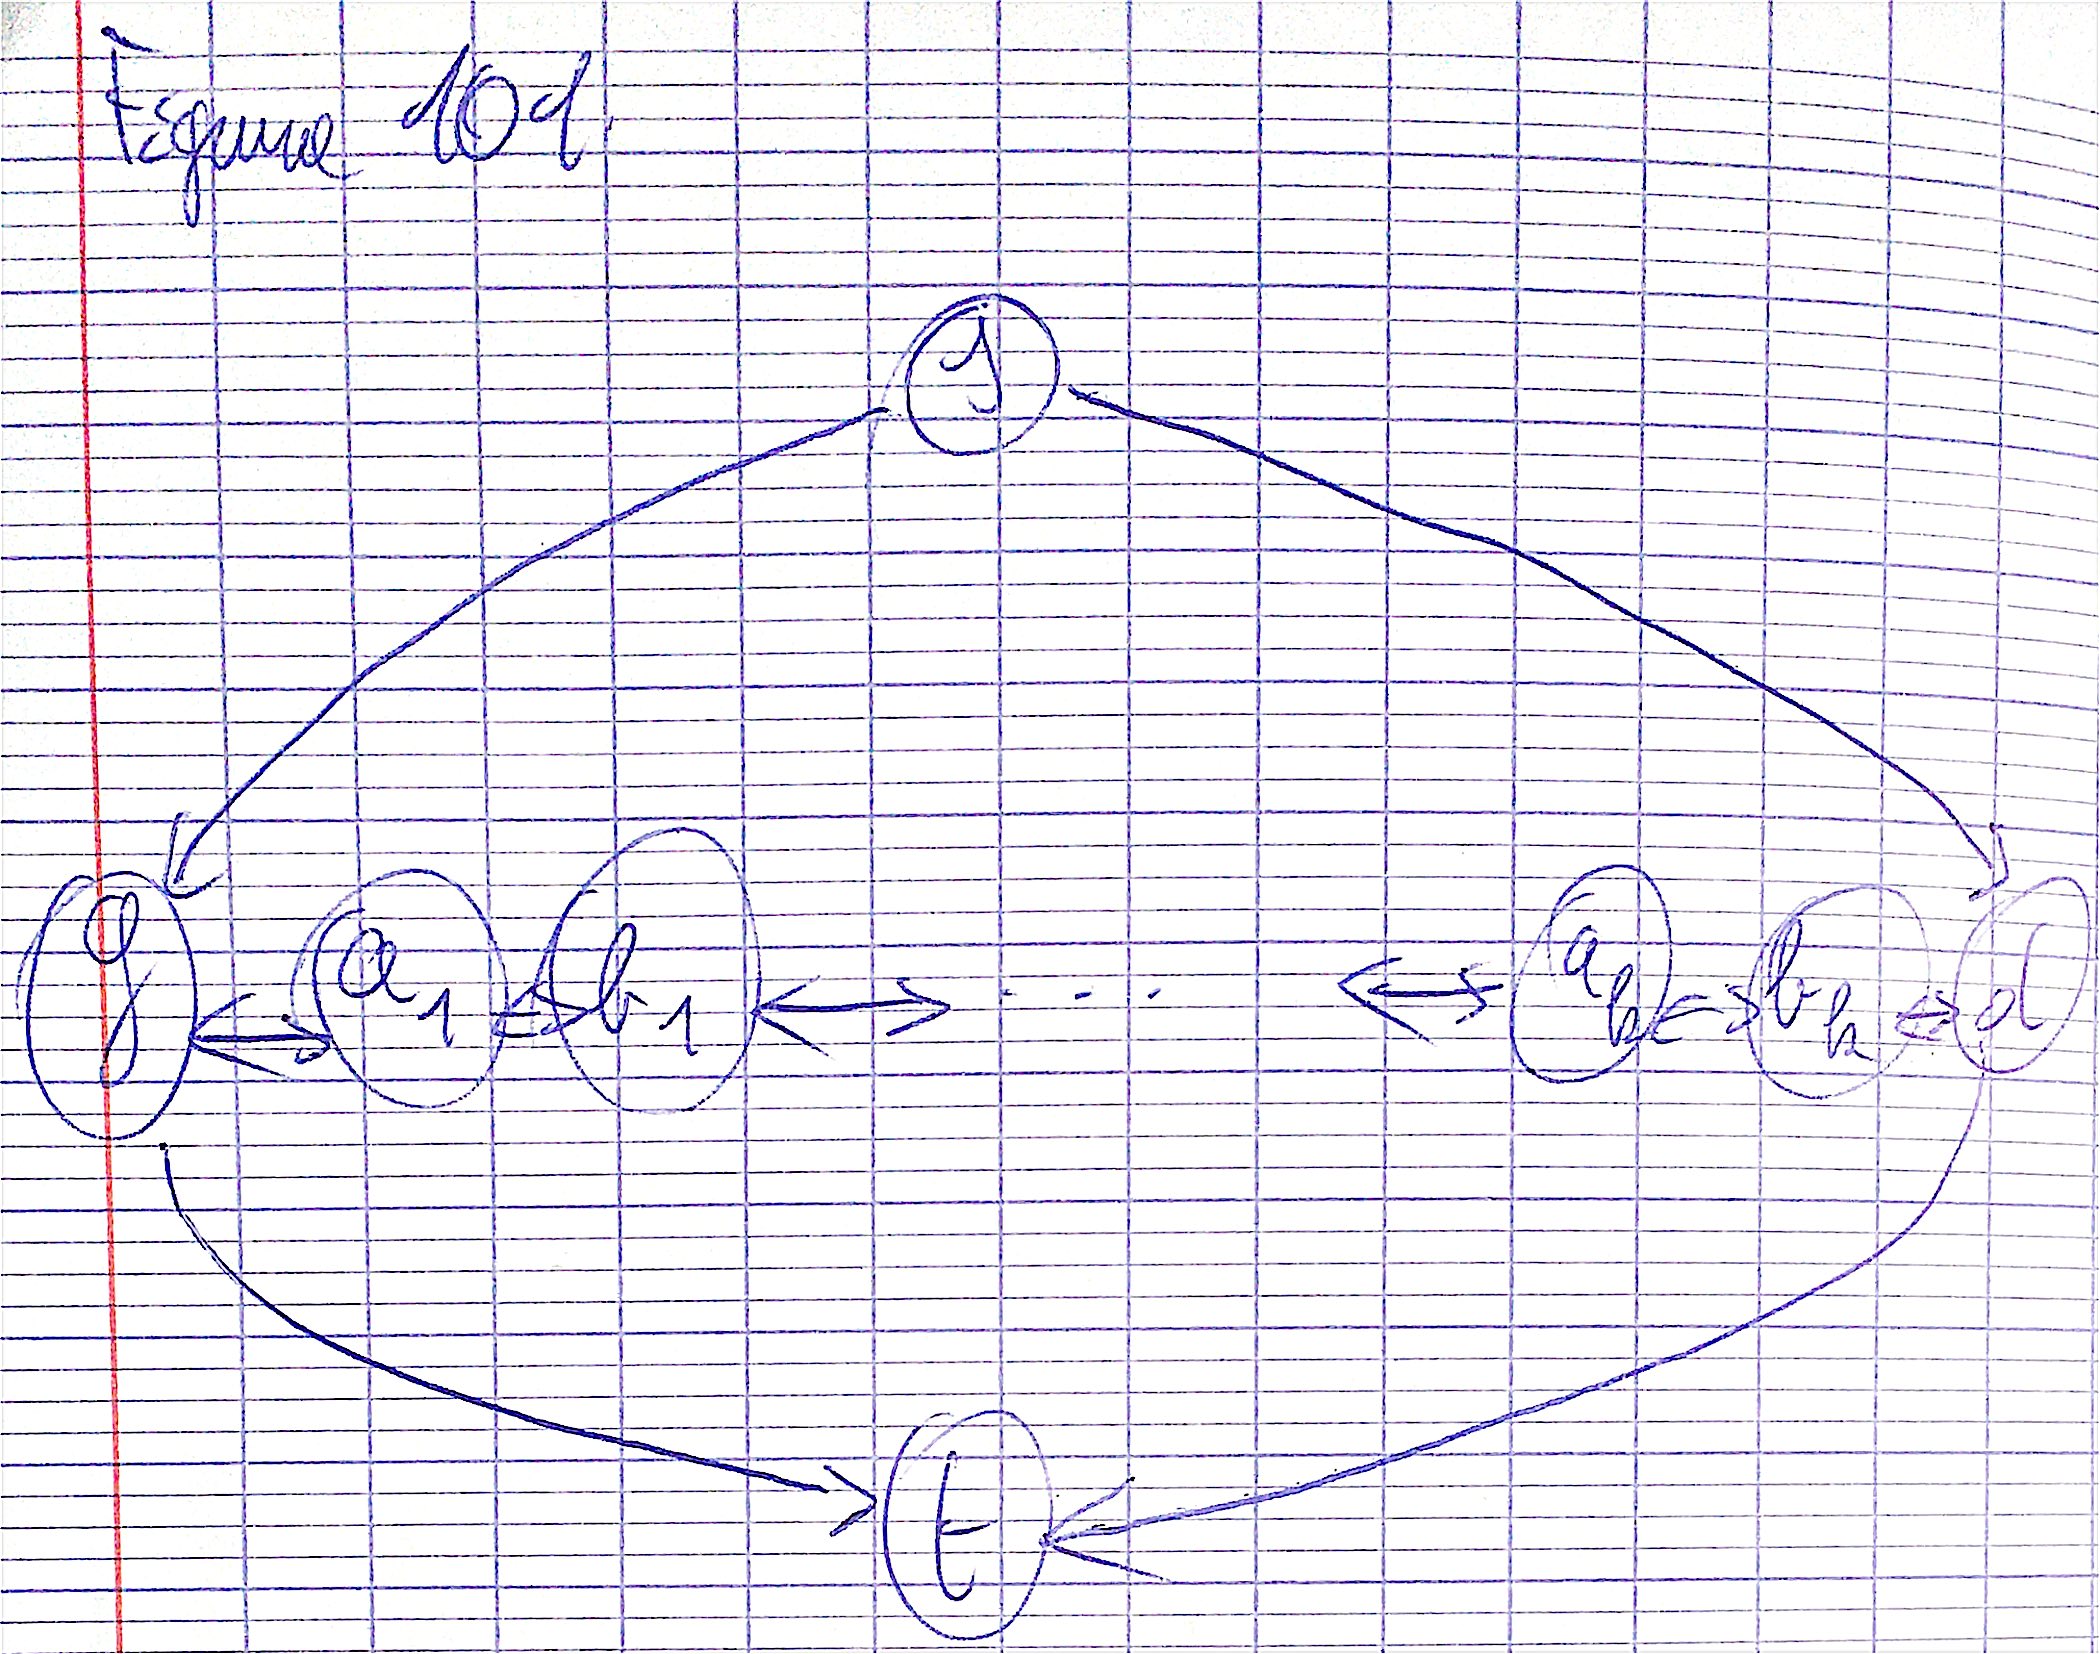 Figure 101
s
g a1 b1 .... ak bk d
t